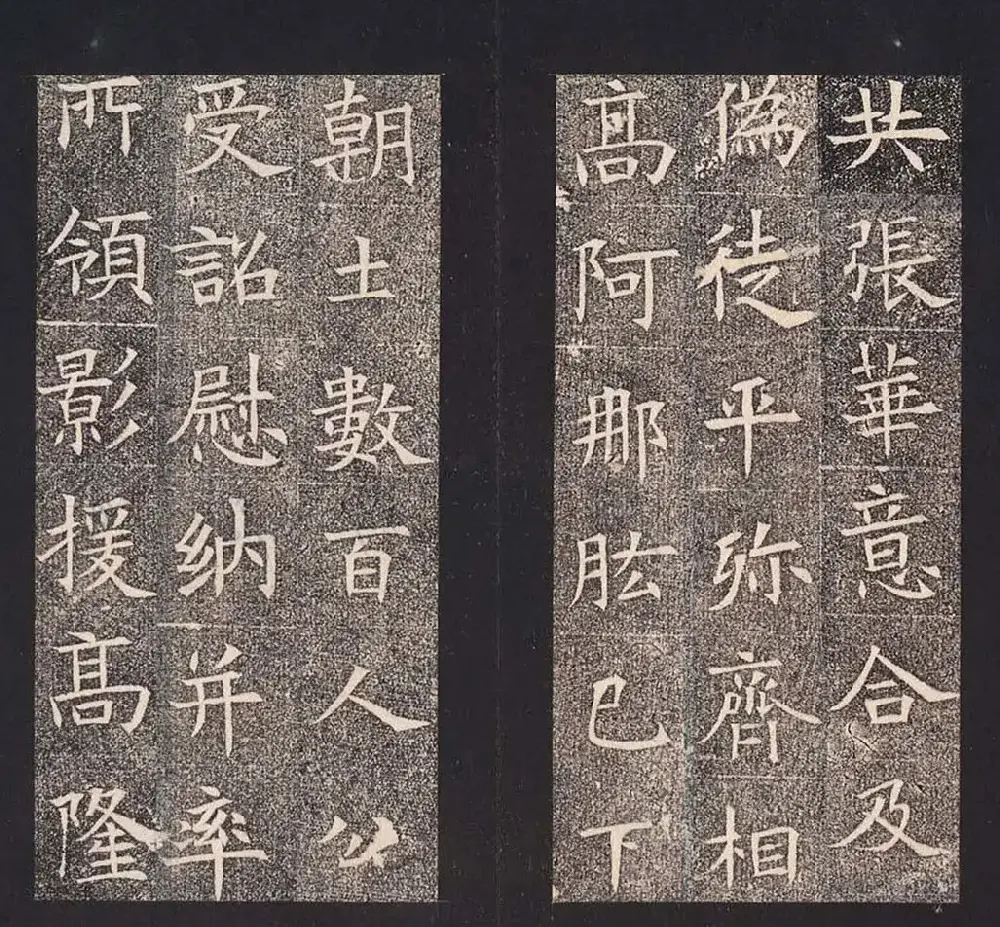 共張華意合及
偽徒平弥齊相
高阿那肱已下
朝士數百人公
受詔慰納并率
所領影援高隆